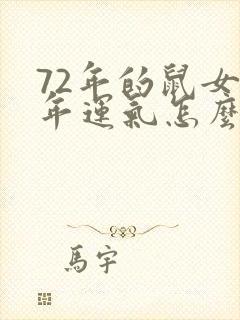 72年的鼠女
年運氣怎麼
馬宇